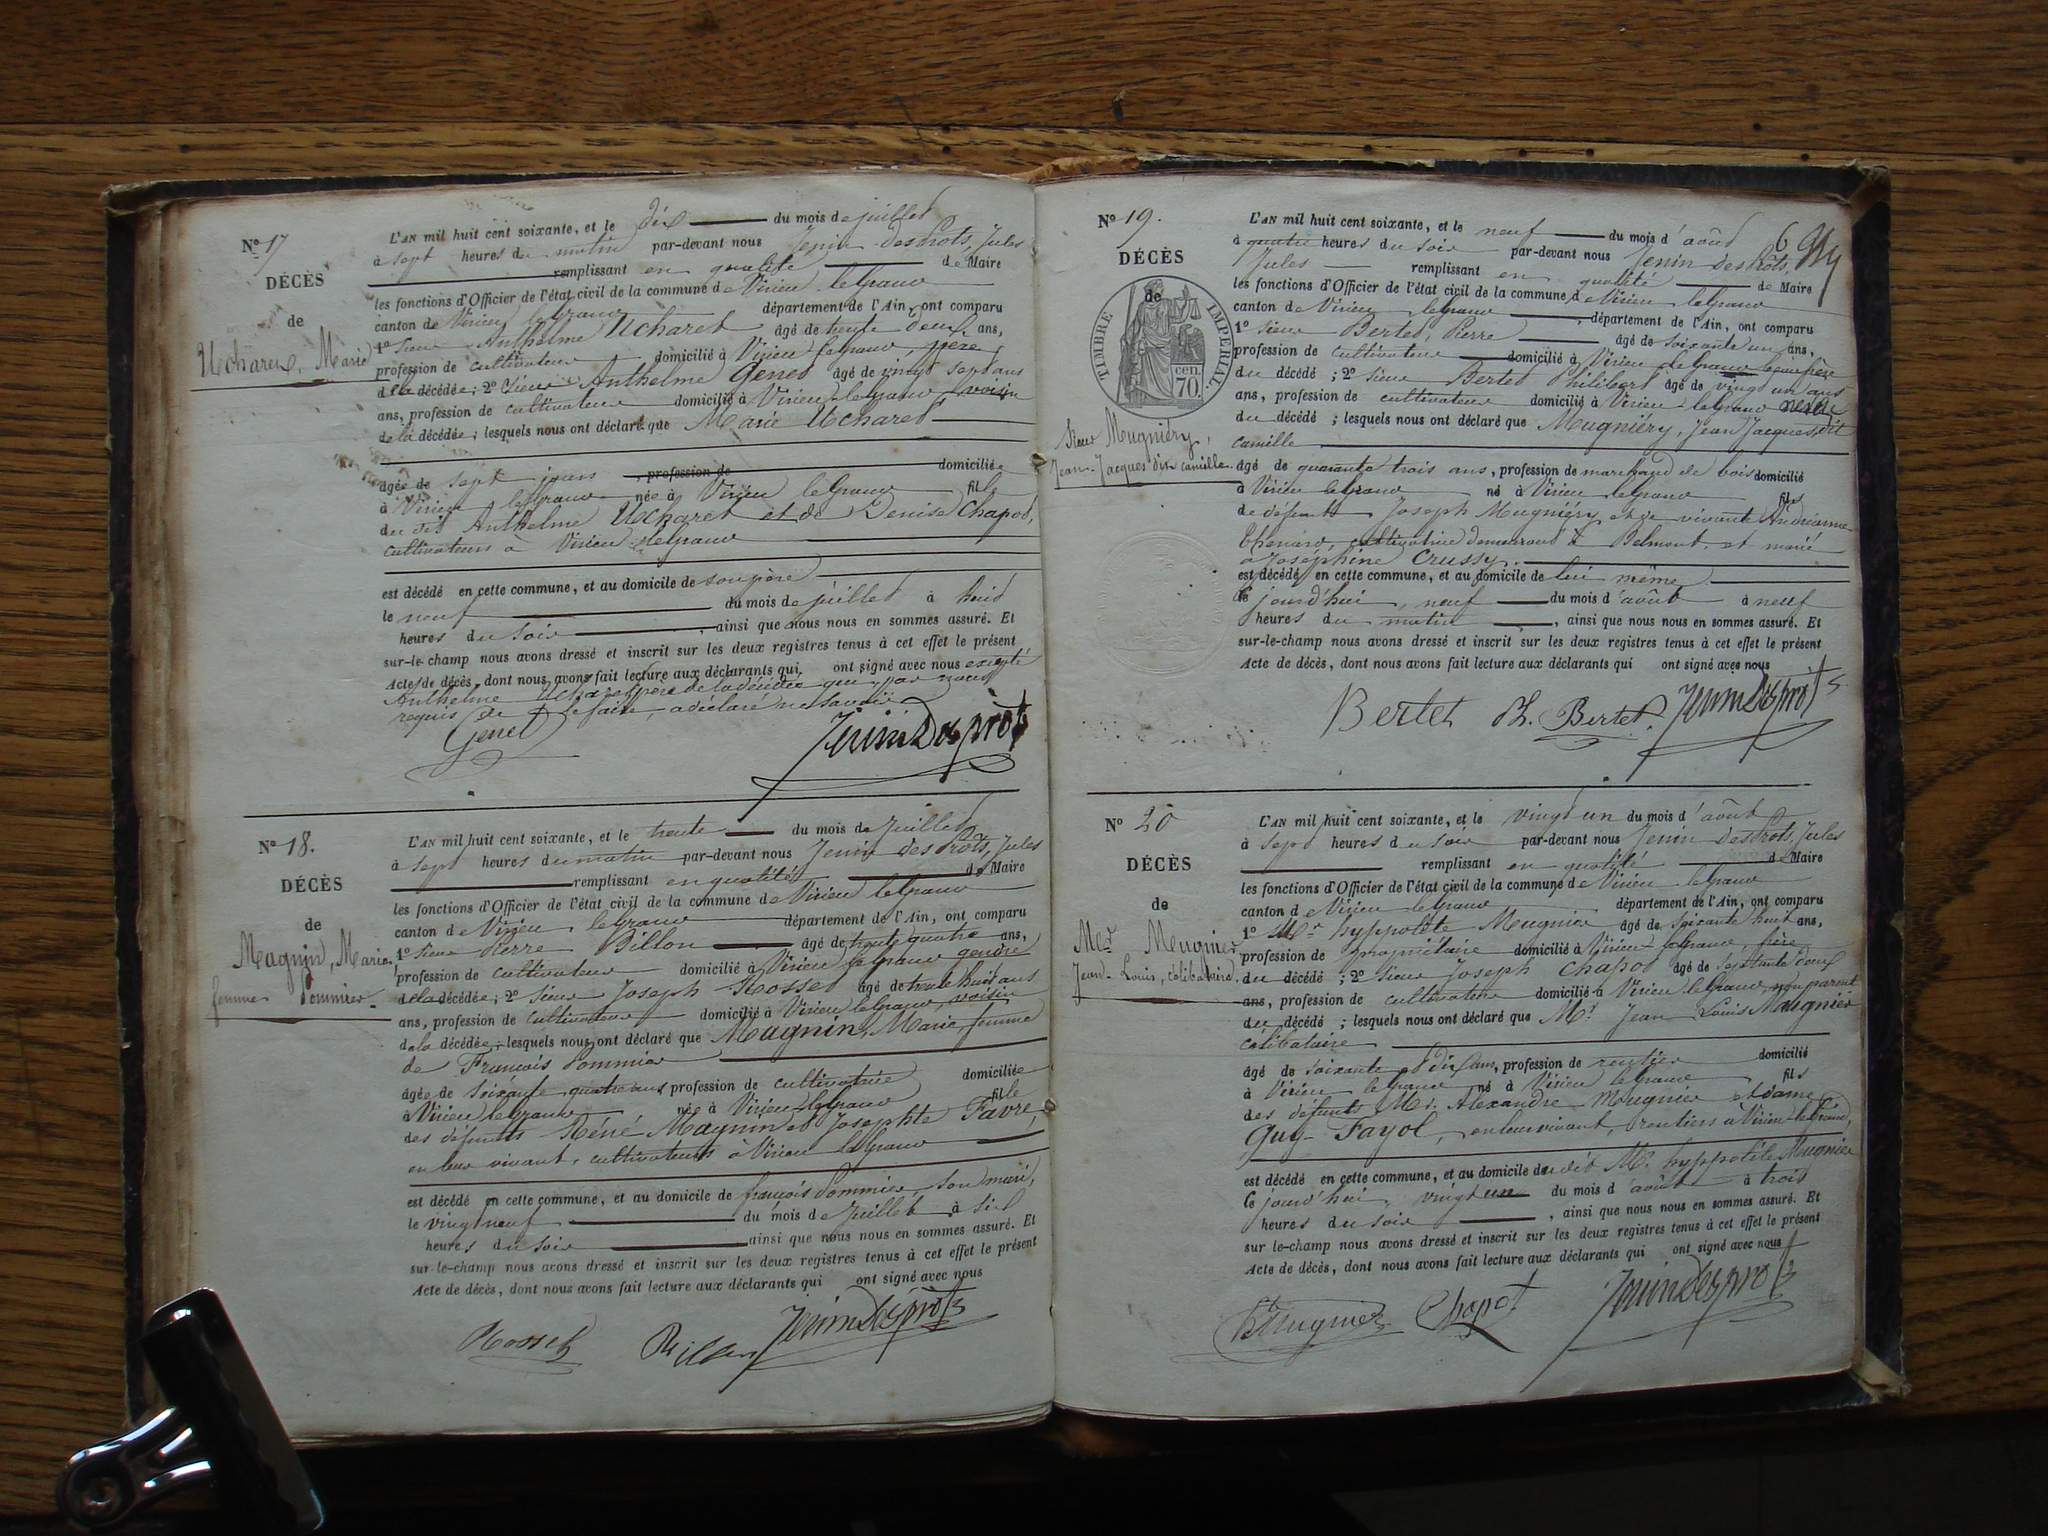 N° 17
DÉCÈS
de
Ucharet, Marie
L'AN mil huit cent soixante, et le dix du mois de juillet
à sept heures du matin par-devant nous Jenin Desprots, Jules
remplissant en qualité de Maire
les fonctions d'Officier de l'état civil de la commune de Virieu-le-Grand
canton de Virieu le Grand département de l'Ain, ont comparu
1° Sieur Anthelme Ucharet âgé de trente deux ans,
profession de cultivateur domicilié à Virieu le Grand, père
de la décédée ; 2° Sieur Anthelme Genet âgé de vingt sept ans
ans, profession de cultivateur domicilié à Virieu-le-Grand, voisin
de la décédée ; lesquels nous ont déclaré que Marie Ucharet
âgée de sept jours , profession de domiciliée
à Virieu le Grand née à Virieu le Grand fille
du dit Anthelme Ucharet et de Denise Chapot,
cultivateurs à Virieu-le-Grand
est décédé en cette commune, et au domicile de son père
le neuf du mois de juillet à huit
heures du soir , ainsi que nous nous en sommes assuré. Et
sur-le-champ nous avons dressé et inscrit sur les deux registres tenus à cet effet le présent
Acte de décès, dont nous avons fait lecture aux déclarants qui ont signé avec nous excepté
Anthelme Ucharet père de la décédée que par nous
requis de le faire, a déclaré ne savoir
Genet Jenin Desprots
N° 18.
DÉCÈS
de
Magnin, Marie
femme Pommier
L'AN mil huit cent soixante, et le trente du mois de juillet
à sept heures du matin par-devant nous Jenin Desprots, Jules
remplissant en qualités de Maire
les fonctions d'Officier de l'état civil de la commune de Virieu le Grand
canton de Virieu le Grand département de l'Ain, ont comparu
1° Sieur Pierre Billon âgé de trente quatre ans,
profession de cultivateur domicilié à Virieu le Grand gendre
de la décédée ; 2° Sieur Joseph Rosset âgé de trente huit ans
ans, profession de cultivateur domicilié à Virieu le Grand, voisin
de la décédée ; lesquels nous ont déclaré que Magnin, Marie, femme
de François Pommier
âgée de soixante quatre ans, profession de cultivatrice domiciliée
à Virieu le Grand née à Virieu-le-Grand fille
des défunts Réné Magnin et Josephte Favre,
en leur vivant, cultivateurs à Virieu le Grand
est décédé en cette commune, et au domicile de françois Pommier, son mari,
le vingt neuf du mois de juillet à six
heures du soir ainsi que nous nous en sommes assuré. Et
sur-le-champ nous avons dressé et inscrit sur les deux registres tenus à cet effet le présent
Acte de décès, dont nous avons fait lecture aux déclarants qui ont signé avec nous
Rosset Billon Jenin Desprots
N° 19.
DÉCÈS
de
TIMBRE IMPERIAL.
70 cen.
Sieur Mugniéry,
Jean-Jacques dit camille.
L'AN mil huit cent soixante, et le neuf du mois d'août
à quatre heures du soir par-devant nous Jenin Desprots,
Jules remplissant en qualité de Maire
les fonctions d'Officier de l'état civil de la commune de Virieu le Grand
canton de Virieu le Grand , département de l'Ain, ont comparu
1° Sieur Bertet, Pierre âgé de soixante un ans,
profession de cultivateur domicilié à Virieu le Grand beau père
du décédé ; 2° Sieur Bertet Philibert âgé de vingt un ans
ans, profession de cultivateur domicilié à Virieu-le-Grand
du décédé ; lesquels nous ont déclaré que Mugniéry, Jean Jacques, dit
camille
âgé de quarante trois ans, profession de marchand de bois domicilié
à Virieu le Grand né à Virieu le Grand fils
de défunt Joseph Mugniéry et de vivante Andrianne
Thenard, cultivatrice demeurant à Belmont, et marié
à Joséphine Crussy.
est décédé en cette commune, et au domicile de lui même
Ce jourd'hui, neuf du mois d'août à neuf
heures du matin , ainsi que nous nous en sommes assuré. Et
sur-le-champ nous avons dressé et inscrit sur les deux registres tenus à cet effet le présent
Acte de décès, dont nous avons fait lecture aux déclarants qui ont signé avec nous
Bertet Ph. Bertet. Jenin Desprots
N° 20
DÉCÈS
de
Mr Mugnier
Jean-Louis, célibataire.
L'AN mil huit cent soixante, et le vingt un du mois d'août
à sept heures du soir par-devant nous Jenin Desprots, Jules
remplissant en qualité de Maire
les fonctions d'Officier de l'état civil de la commune de Virieu-le-Grand
canton de Virieu le Grand département de l'Ain, ont comparu
1° Mr hyppolite Mugnier âgé de soixante huit ans,
profession de propriétaire domicilié à Virieu le Grand, frère
du décédé ; 2° Sieur Joseph Chapot âgé de septante deux
ans, profession de cultivateur domicilié à Virieu le Grand, non parent
du décédé ; lesquels nous ont déclaré que Mr Jean Louis Mugnier
célibataire
âgé de soixante et dix ans, profession de rentier domicilié
à Virieu le Grand né à Virieu le Grand fils
des défunts Mr. Alexandre Mugnier et dame
Guy-Fayol, en leur vivant, rentiers à Virieu-le-Grand,
est décédé en cette commune, et au domicile du dit Mr. hyppolite Mugnier
Ce jourd'hui, vingt un du mois d'août à trois
heures du soir , ainsi que nous nous en sommes assuré. Et
sur le-champ nous avons dressé et inscrit sur les deux registres tenus à cet effet le présent
Acte de décès, dont nous avons fait lecture aux déclarants qui ont signé avec nous
Mugnier Chapot Jenin Desprots